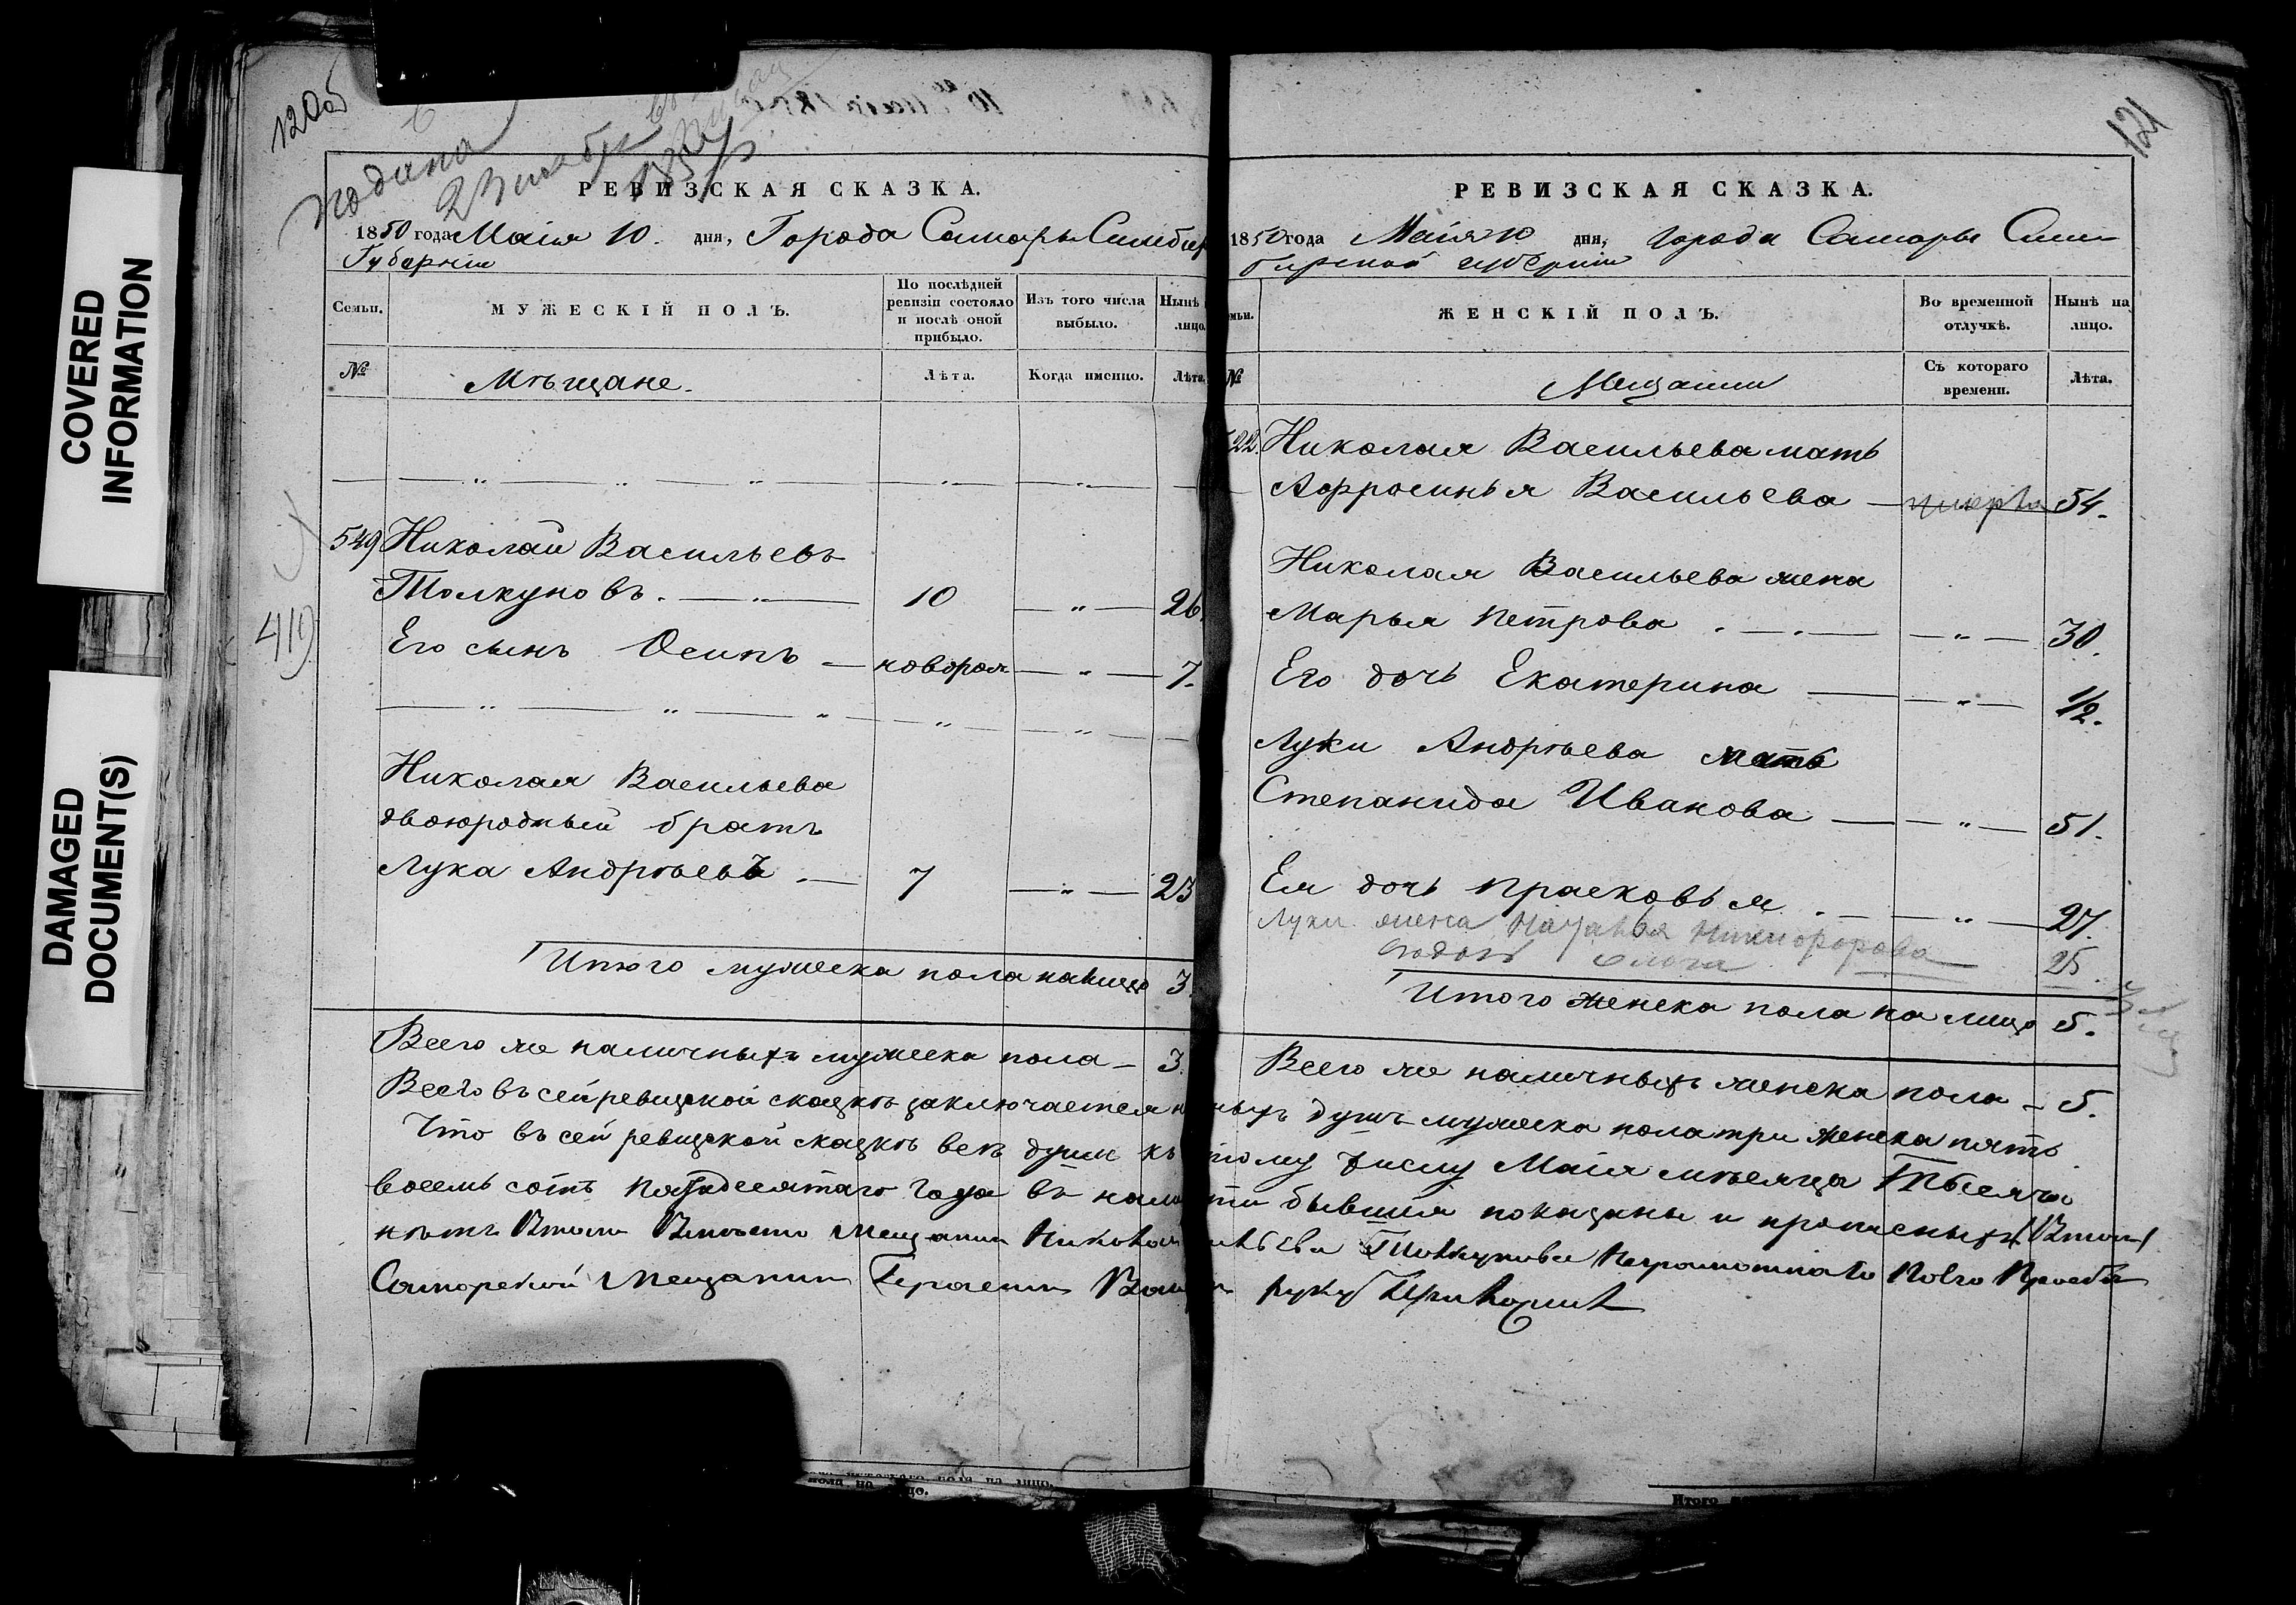 COVERED
INFORMATION
DAMAGED
DOCUMENT(S)
120об
подана
2
РЕВИЗСКАЯ СКАЗКА.
1850 года Маія 10. дня, Города Самары Симбир
Губерніи
Семьи.
МУЖЕСКІЙ ПОЛЪ.
По послѣдней
ревизіи состояло
и послѣ оной
прибыло.
Изъ того числа
выбыло.
Нынѣ
лицо
№
Мѣщане.
Лѣта.
Когда именно.
Лѣта
549 Николай Васильевъ
Толкуновъ. 10 26.
Его сынъ Осипъ новорож 7.
419
Николая Васильева
двоюродный братъ
Лука Андрѣевъ 7 23
Итого мужеска пола налицо 3.
Всего же наличныхъ мужеска пола 3.
Всего въ сей ревизской сказкѣ заключается
Что въ сей ревизской сказкѣ всѣ души къ
восемь сотъ пятдесятаго года въ нали
нѣтъ Мещанин Никола
Самарской Мещанин Герасим
121
РЕВИЗСКАЯ СКАЗКА.
1850 года Маія 10 дня, города Самары Сим
бирской губерніи
мьи.
ЖЕНСКІЙ ПОЛЪ.
Во временной
отлучкѣ.
Нынѣ на
лицо.
№
Мещанки
Съ котораго
времени.
Лѣта.
522. Николая Васильева мать
Афросинья Васильева умерла 54.
Николая Васильева жена
Марья Петрова 30.
Его дочь Екатерина 1/2.
Луки Андрѣева мать
Степанида Иванова 51.
Ея дочь Прасковья 27
Луки жена Наталья Никифорова
25
Итого женска пола на лицо 5.
Всего же наличныхъ женска пола 5.
ныхъ душъ мужеска пола три женска пять
тому числу Маія мѣсяца тысяча
сти бывшія показаны и прописныхъ
Толкунова Неграмотнаго Поего Прозбы
руку Приложил
пола на лицо.
Итого